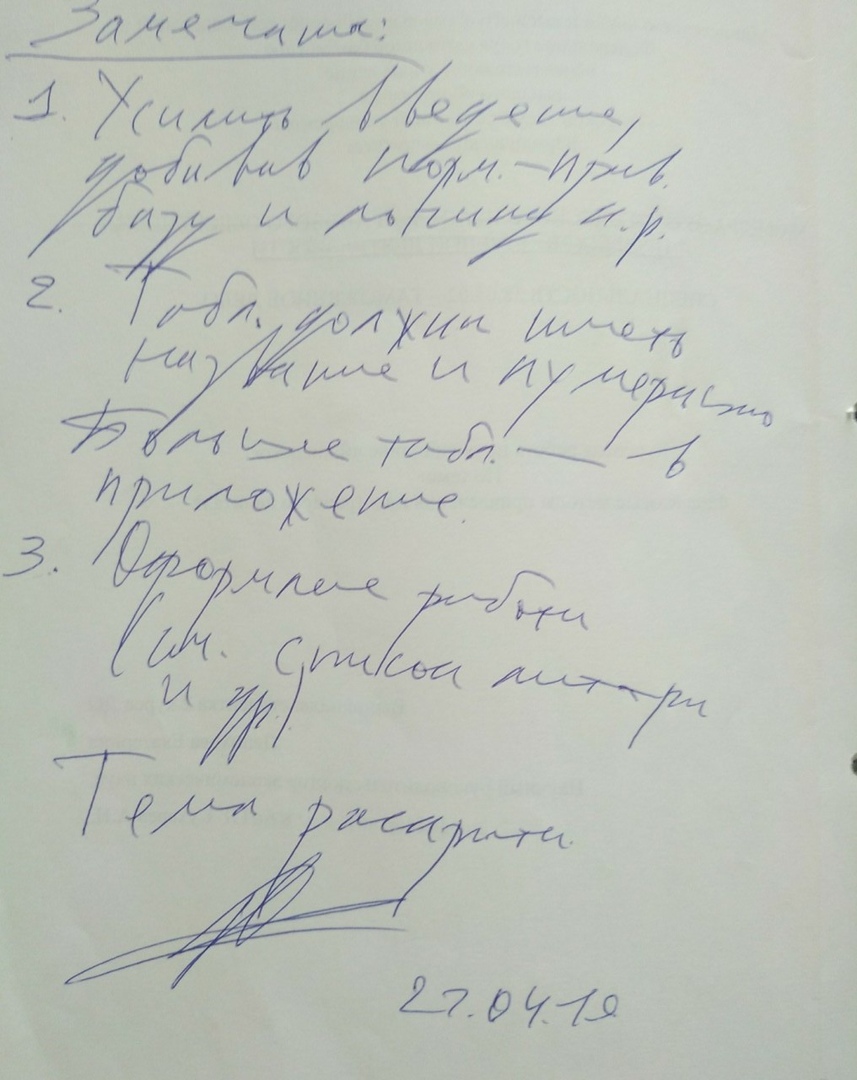 Замечания:
1. Усилить введение,
добавив норм.-прав.
базу и логику н.р.
2. Табл. должны иметь
название и нумерацию
Большие табл. — в
приложение.
3. Оформление работы
(см. список литер-ры
и др.)
Тема раскрыта.
27.04.19